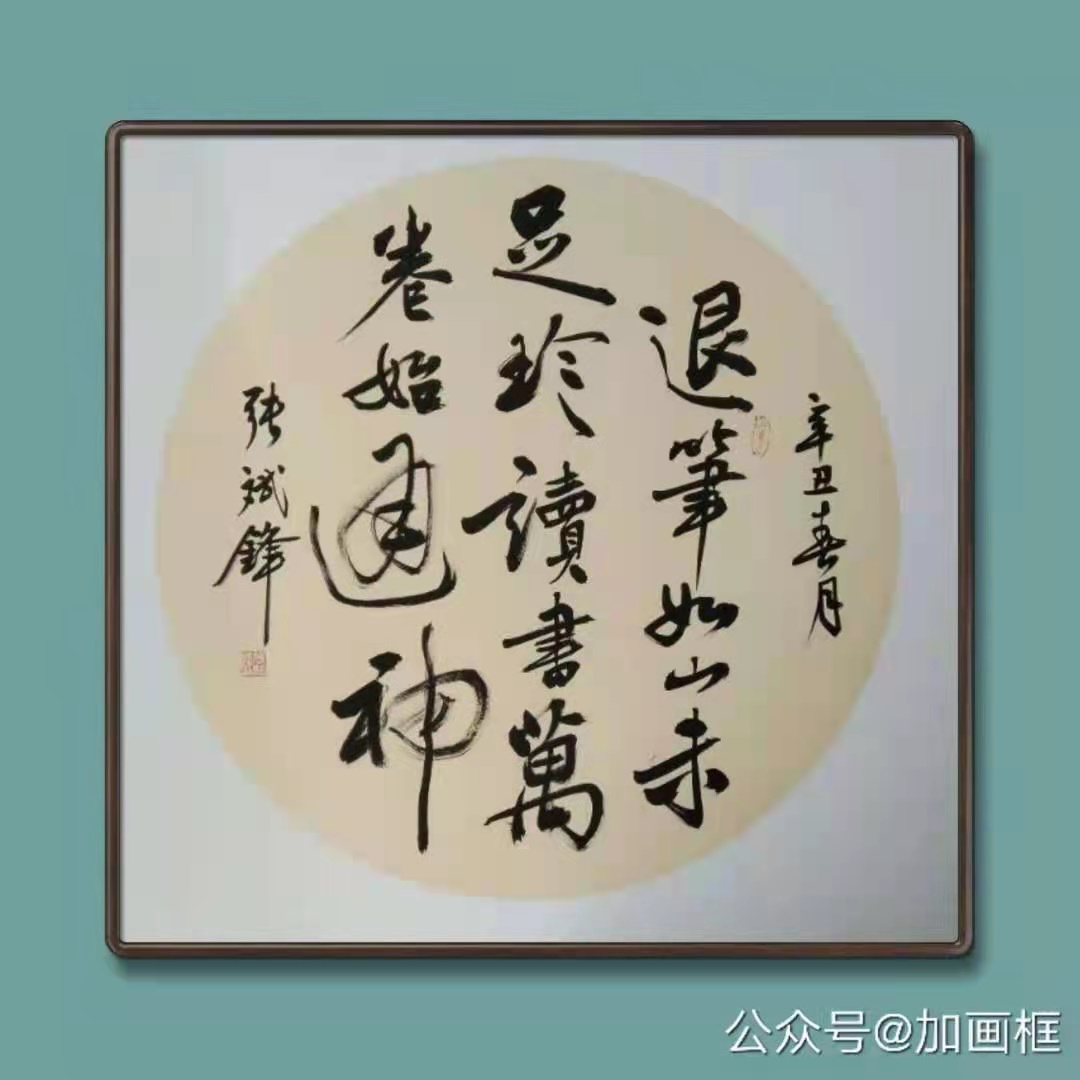 辛丑春月
退筆如山未
足珍讀書萬
卷始通神
张斌鋒
公众号@加画框